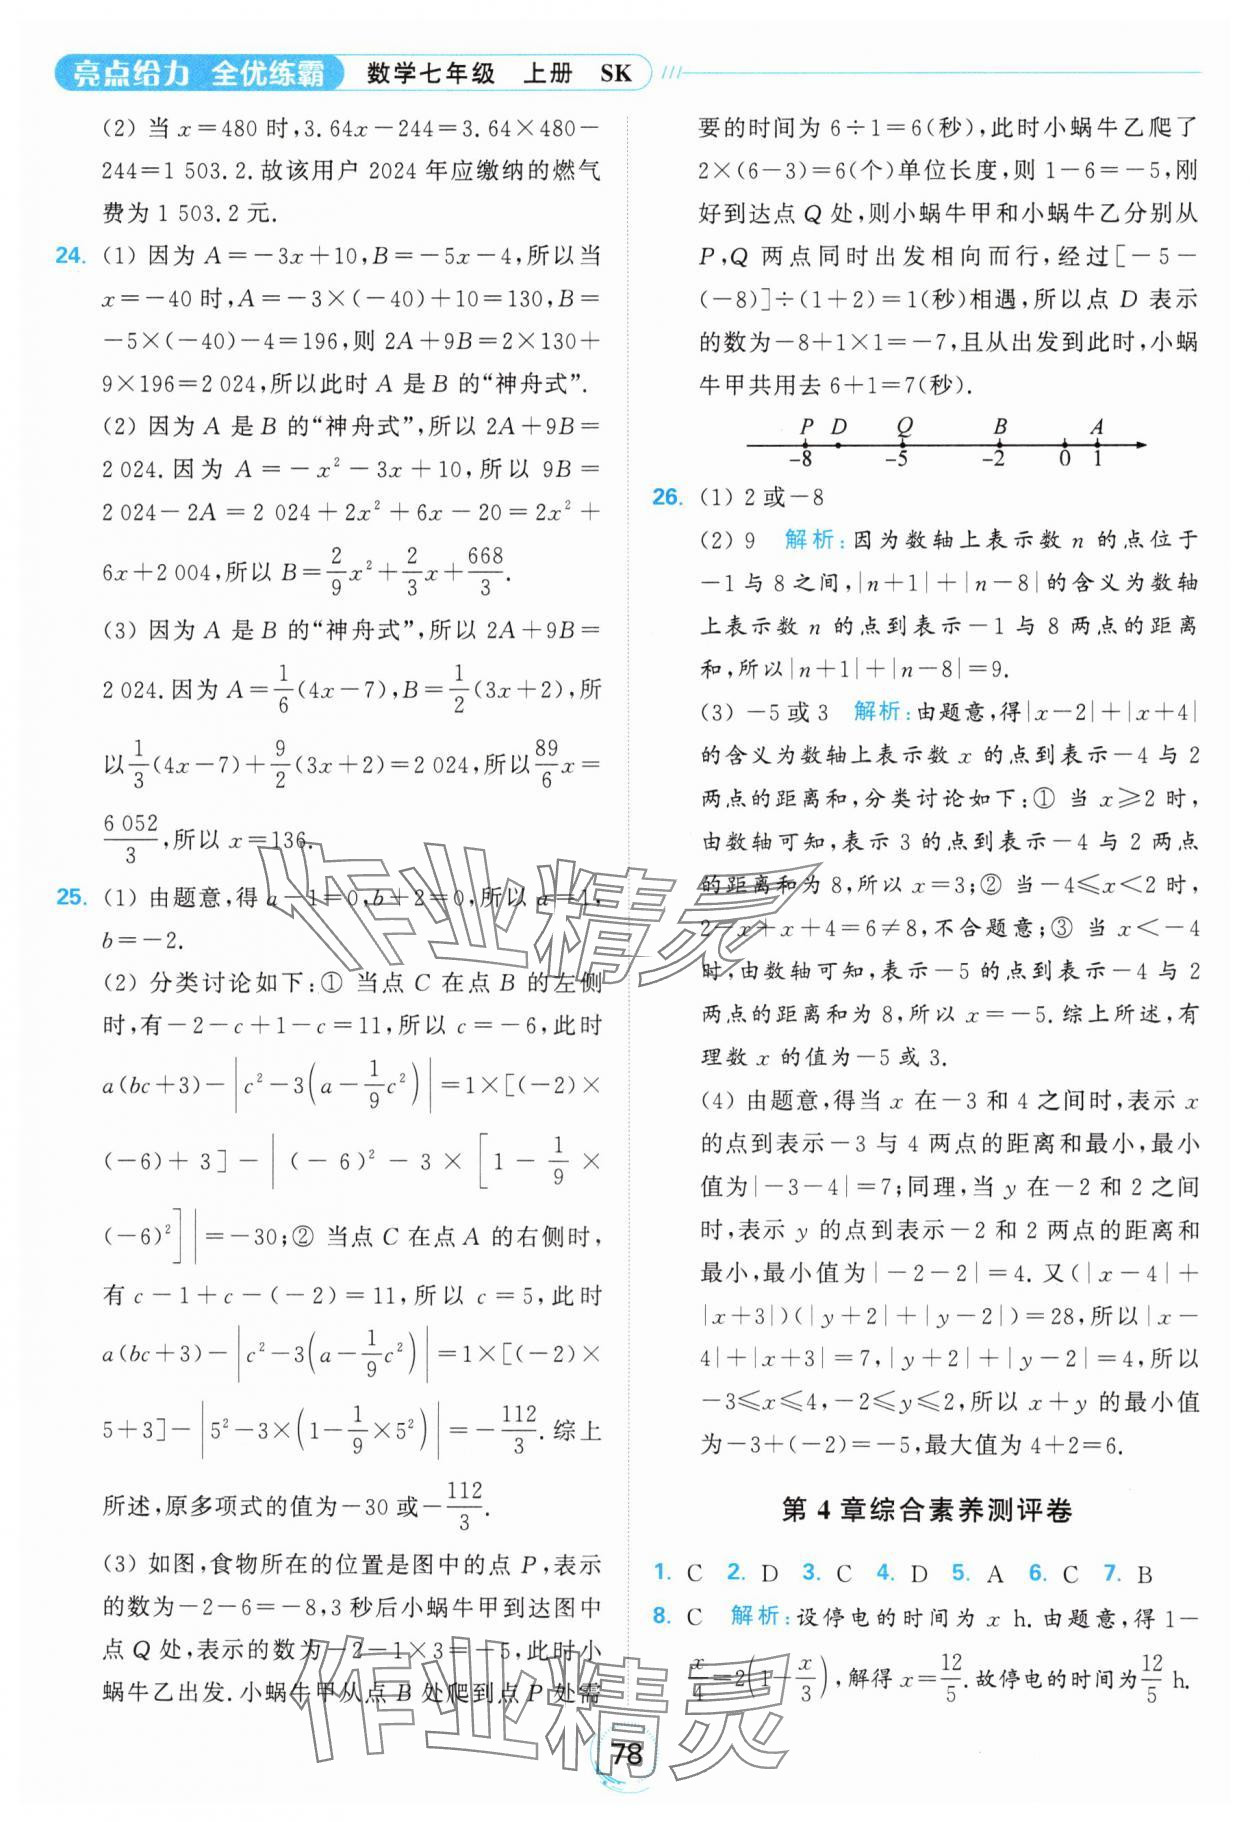 亮点给力 全优练霸 数学七年级 上册 SK
(2) 当 x=480 时,3.64x-244=3.64×480-
244=1 503.2.故该用户 2024 年应缴纳的燃气
费为 1 503.2 元.
24. (1) 因为 A=-3x+10,B=-5x-4,所以当
x=-40 时,A=-3×(-40)+10=130,B=
-5×(-40)-4=196,则 2A+9B=2×130+
9×196=2 024,所以此时 A 是 B 的“神舟式”.
(2) 因为 A 是 B 的“神舟式”,所以 2A+9B=
2 024.因为 A=-x²-3x+10,所以 9B=
2 024-2A=2 024+2x²+6x-20=2x²+
6x+2 004,所以 B=2/9x²+2/3x+668/3.
(3) 因为 A 是 B 的“神舟式”,所以 2A+9B=
2 024.因为 A=1/6(4x-7),B=1/2(3x+2),所
以1/3(4x-7)+9/2(3x+2)=2 024,所以89/6x=
6 052/3,所以 x=136.
25. (1) 由题意,得 a-1=0,b+2=0,所以 a=1,
b=-2.
(2) 分类讨论如下:① 当点 C 在点 B 的左侧
时,有-2-c+1-c=11,所以 c=-6,此时
a(bc+3)-|c²-3(a-1/9c²)|=1×[(-2)×
(-6)+3]-|(-6)²-3×[1-1/9×
(-6)²]|=-30;② 当点 C 在点 A 的右侧时,
有 c-1+c-(-2)=11,所以 c=5,此时
a(bc+3)-|c²-3(a-1/9c²)|=1×[(-2)×
5+3]-|5²-3×(1-1/9×5²)|=-112/3.综上
所述,原多项式的值为-30 或-112/3.
(3) 如图,食物所在的位置是图中的点 P,表示
的数为-2-6=-8,3 秒后小蜗牛甲到达图中
点 Q 处,表示的数为-2-1×3=-5,此时小
蜗牛乙出发.小蜗牛甲从点 B 处爬到点 P 处需
要的时间为 6÷1=6(秒),此时小蜗牛乙爬了
2×(6-3)=6(个)单位长度,则 1-6=-5,刚
好到达点 Q 处,则小蜗牛甲和小蜗牛乙分别从
P,Q 两点同时出发相向而行,经过[-5-
(-8)]÷(1+2)=1(秒)相遇,所以点 D 表示
的数为-8+1×1=-7,且从出发到此时,小蜗
牛甲共用去 6+1=7(秒).
P D Q B A
-8 -5 -2 0 1
26. (1) 2 或-8
(2) 9 解析:因为数轴上表示数 n 的点位于
-1 与 8 之间,|n+1|+|n-8|的含义为数轴
上表示数 n 的点到表示-1 与 8 两点的距离
和,所以|n+1|+|n-8|=9.
(3) -5 或 3 解析:由题意,得|x-2|+|x+4|
的含义为数轴上表示数 x 的点到表示-4 与 2
两点的距离和,分类讨论如下:① 当 x≥2 时,
由数轴可知,表示 3 的点到表示-4 与 2 两点
的距离和为 8,所以 x=3;② 当-4≤x<2 时,
2-x+x+4=6≠8,不合题意;③ 当 x<-4
时,由数轴可知,表示-5 的点到表示-4 与 2
两点的距离和为 8,所以 x=-5.综上所述,有
理数 x 的值为-5 或 3.
(4) 由题意,得当 x 在-3 和 4 之间时,表示 x
的点到表示-3 与 4 两点的距离和最小,最小
值为|-3-4|=7;同理,当 y 在-2 和 2 之间
时,表示 y 的点到表示-2 和 2 两点的距离和
最小,最小值为|-2-2|=4.又(|x-4|+
|x+3|)(|y+2|+|y-2|)=28,所以|x-
4|+|x+3|=7,|y+2|+|y-2|=4,所以
-3≤x≤4,-2≤y≤2,所以 x+y 的最小值
为-3+(-2)=-5,最大值为 4+2=6.
第 4 章综合素养测评卷
1. C 2. D 3. C 4. D 5. A 6. C 7. B
8. C 解析:设停电的时间为 x h.由题意,得 1-
x/4=2(1-x/3),解得 x=12/5.故停电的时间为12/5 h.
78
作业精灵
作业精灵